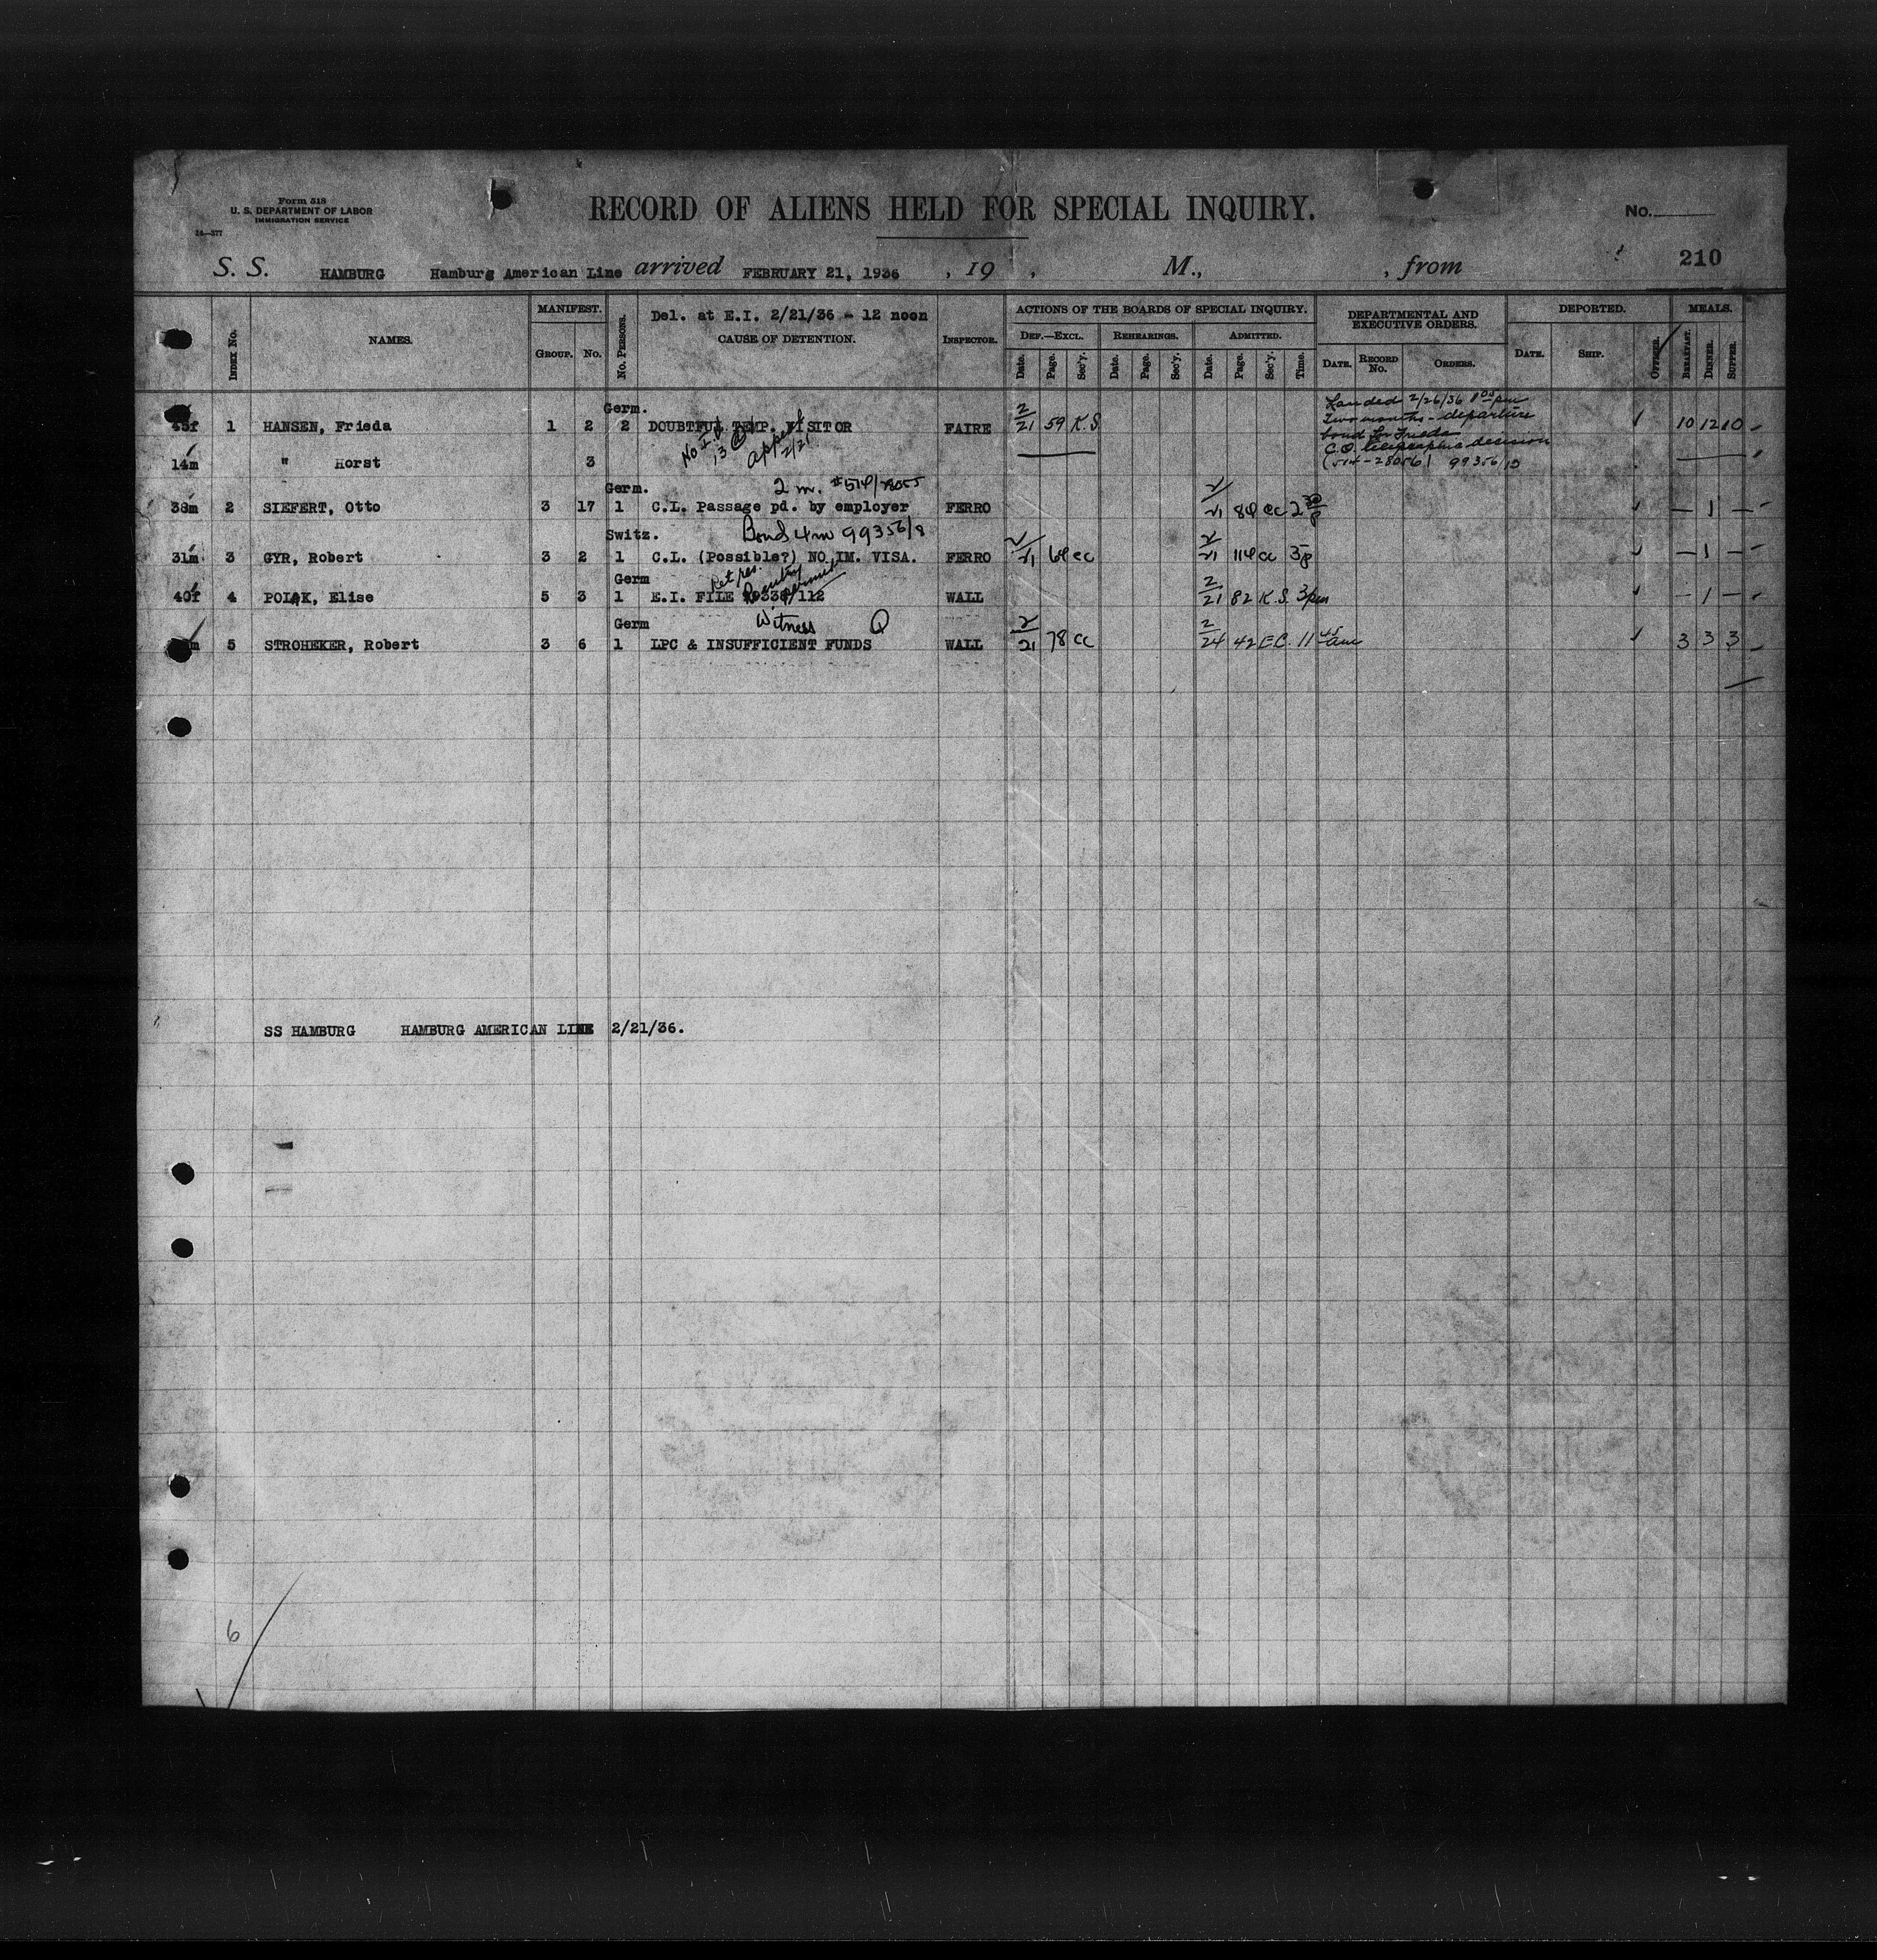 Form 518
U. S. DEPARTMENT OF LABOR
IMMIGRATION SERVICE
14—377
RECORD OF ALIENS HELD FOR SPECIAL INQUIRY.
No.
210
S. S. HAMBURG Hamburg American Line arrived FEBRUARY 21, 1936 , 19 , M., , from
INDEX No. NAMES. MANIFEST. GROUP. No. No. PERSONS. Del. at E.I. 2/21/36 - 12 noon CAUSE OF DETENTION. INSPECTOR.
ACTIONS OF THE BOARDS OF SPECIAL INQUIRY. DEF.—EXCL. Date. Page. Sec'y. REHEARINGS. Date. Page. Sec'y. ADMITTED. Date. Page. Sec'y. Time.
DEPARTMENTAL AND EXECUTIVE ORDERS. DATE. RECORD No. ORDERS. DEPORTED. DATE. SHIP. OFFICER. MEALS. BREAKFAST. DINNER. SUPPER.
Germ.
45f 1 HANSEN, Frieda 1 2 2 DOUBTFUL TEMP. VISITOR FAIRE 2/21 59 K.S. 10 12 10
Landed 2/26/36
Two months - departure
bond for Frieda
C.O. telegraphic decision
99356/10
appeal
2/21
14m " Horst 3
Germ. 2 m.
38m 2 SIEFERT, Otto 3 17 1 C.L. Passage pd. by employer FERRO 2/21 84 cc 2 30 p — 1 —
Switz. Bond 4m 99356/8
31m 3 GYR, Robert 3 2 1 C.L. (Possible?) NO IM. VISA. FERRO 2/21 64 cc 2/21 114 cc 3p — 1 —
Germ Ret res. Reentry permit
40f 4 POLAK, Elise 5 3 1 E.I. FILE WALL 2/21 82 K.S. 3pm — 1 —
Germ Witness Q
m 5 STROHEKER, Robert 3 6 1 LPC & INSUFFICIENT FUNDS WALL 2/21 78 cc 2/24 42 E.C. 11 45 am 3 3 3
SS HAMBURG HAMBURG AMERICAN LINE 2/21/36.
6